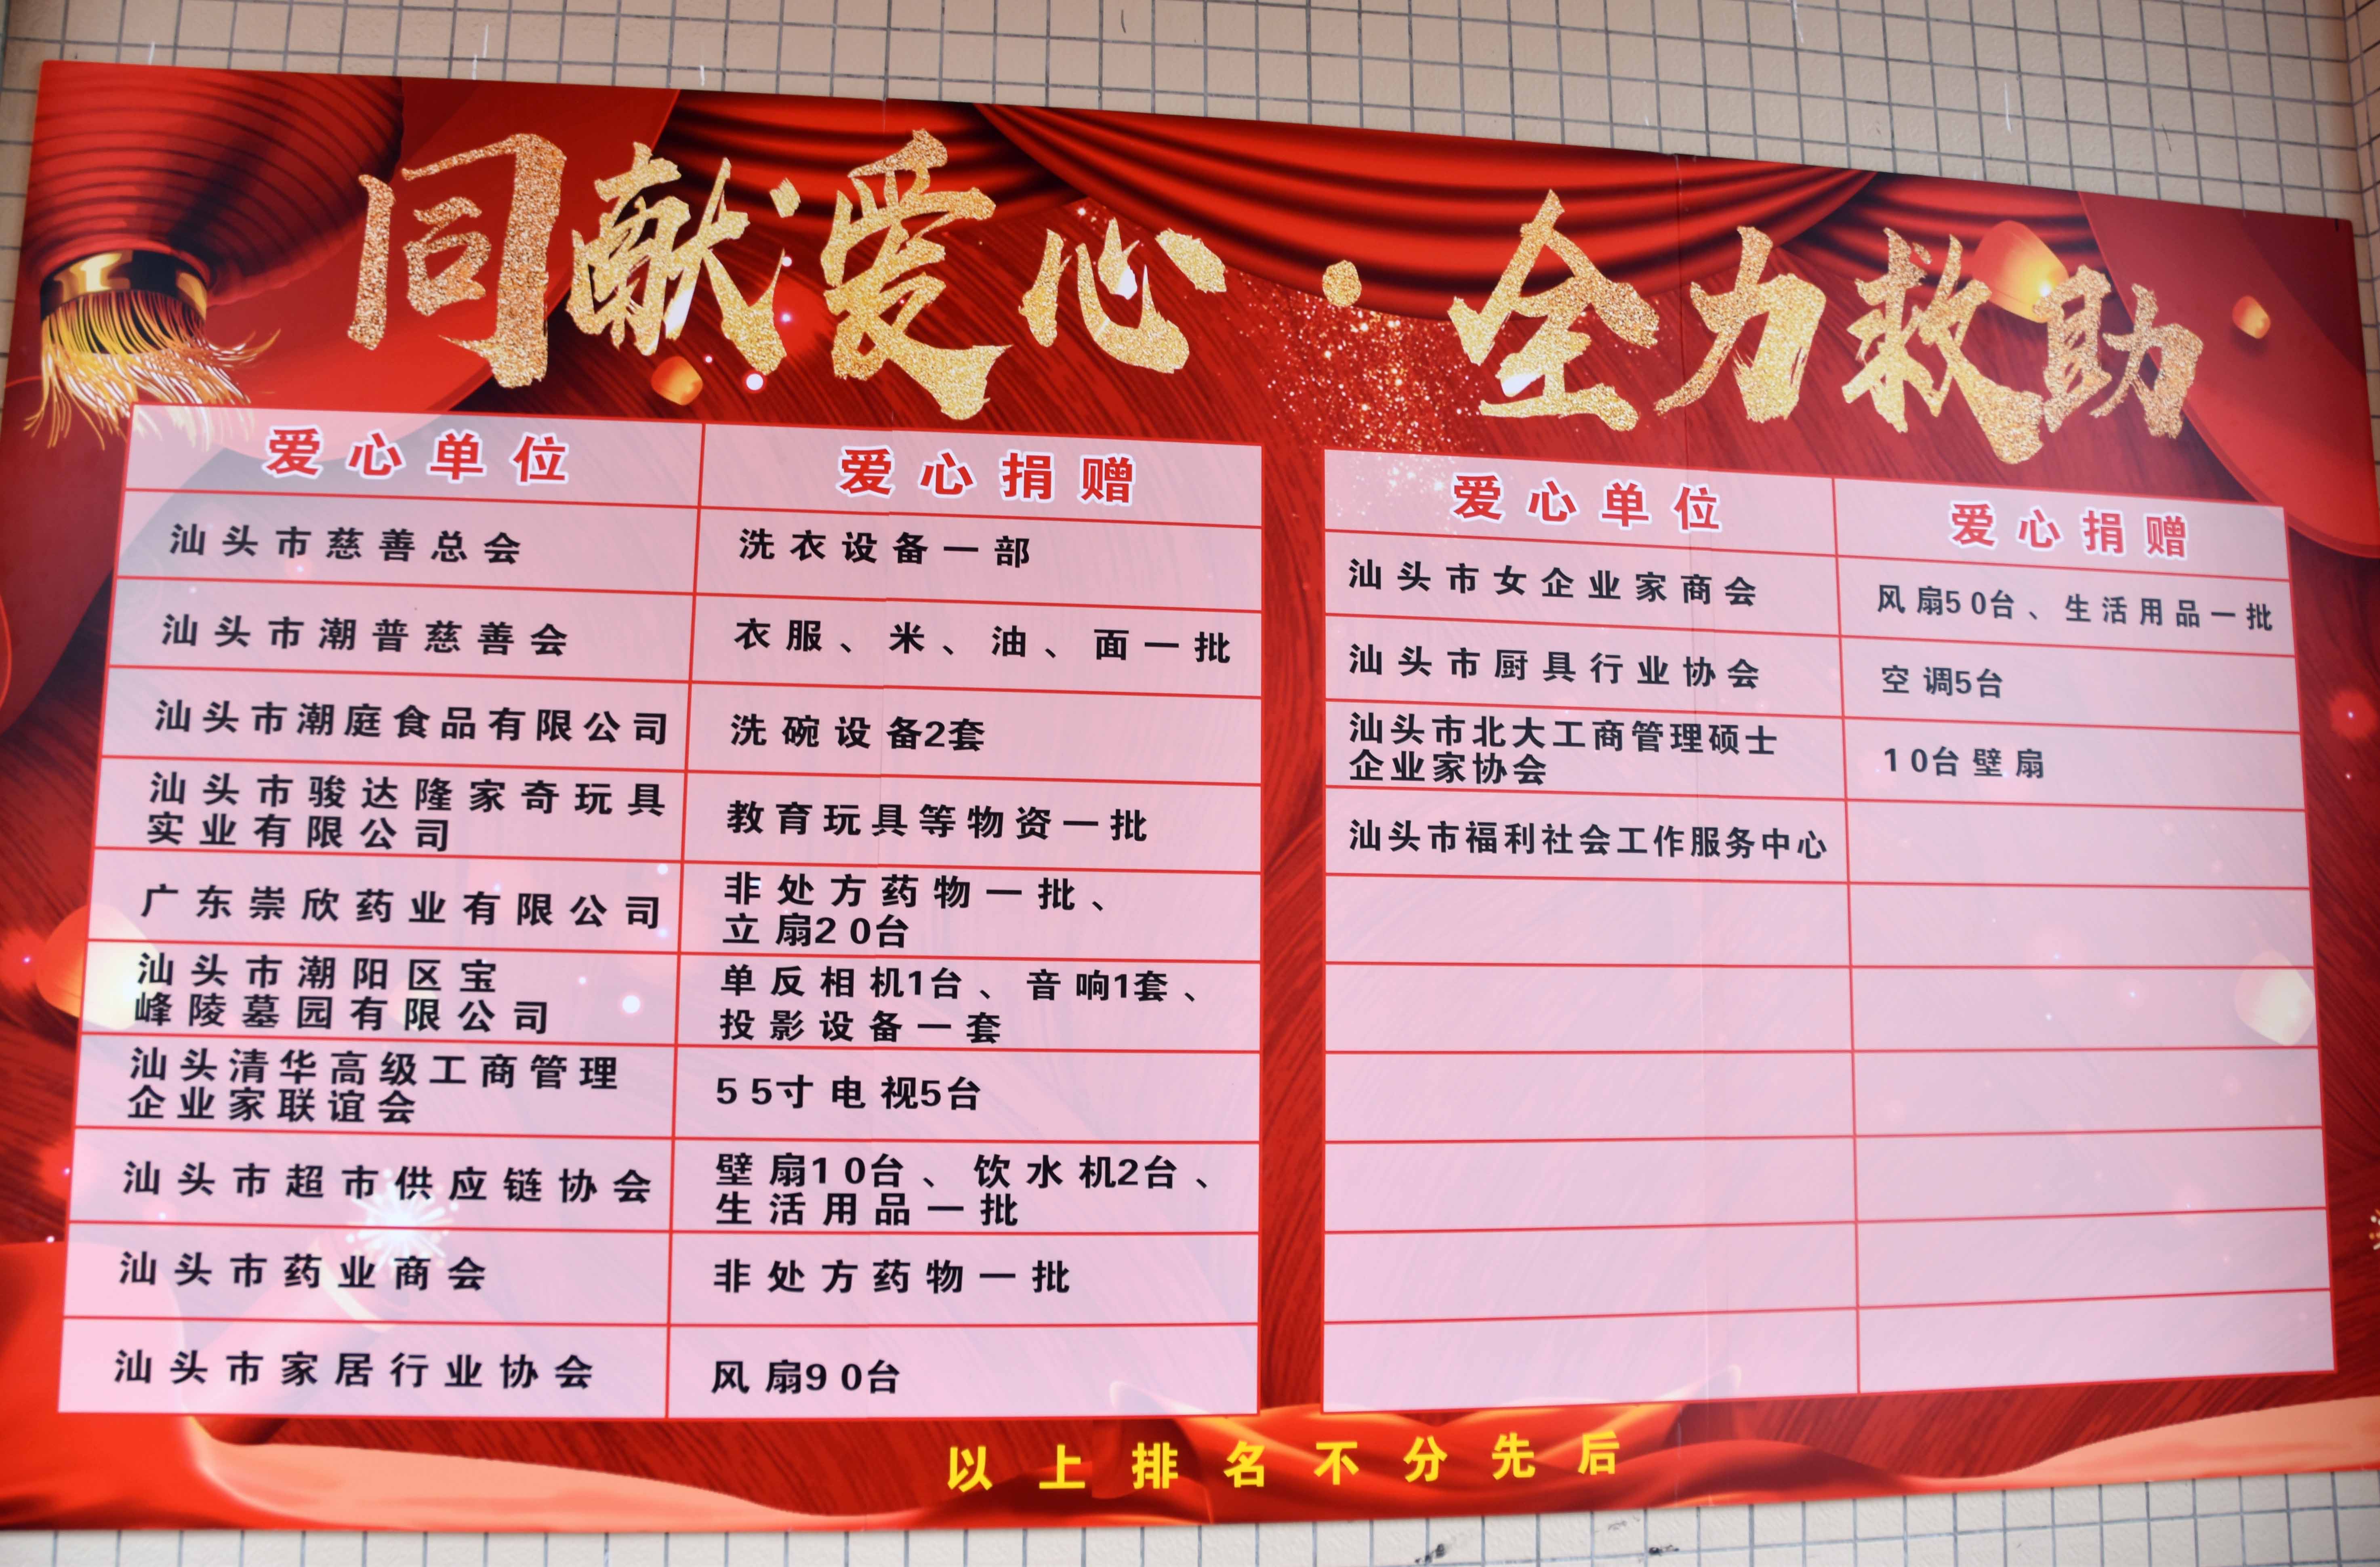 同献爱心·全力救助
爱心单位 爱心捐赠
汕头市慈善总会 洗衣设备一部
汕头市潮普慈善会 衣服、米、油、面一批
汕头市潮庭食品有限公司 洗碗设备2套
汕头市骏达隆家奇玩具
实业有限公司
教育玩具等物资一批
广东崇欣药业有限公司
非处方药物一批、
立扇20台
汕头市潮阳区宝
峰陵墓园有限公司
单反相机1台、音响1套、
投影设备一套
汕头清华高级工商管理
企业家联谊会
55寸电视5台
汕头市超市供应链协会
壁扇10台、饮水机2台、
生活用品一批
汕头市药业商会 非处方药物一批
汕头市家居行业协会 风扇90台
爱心单位 爱心捐赠
汕头市女企业家商会 风扇50台、生活用品一批
汕头市厨具行业协会 空调5台
汕头市北大工商管理硕士
企业家协会
10台壁扇
汕头市福利社会工作服务中心
以上排名不分先后